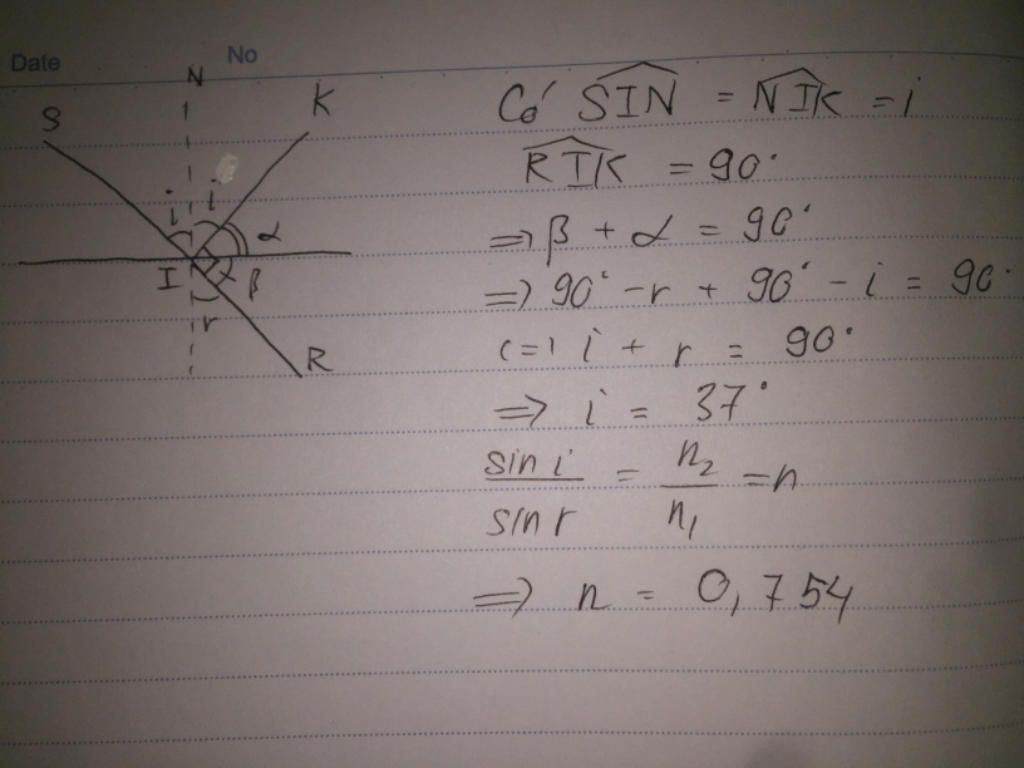 Date
No
N
S
K
i
i
α
I
β
r
R
Có SIN = NIK = i
RIK = 90°
=> β + α = 90°
=> 90° - r + 90° - i = 90°
<=> i + r = 90°
=> i = 37°
sin i / sin r = n₂ / n₁ = n
=> n = 0,754